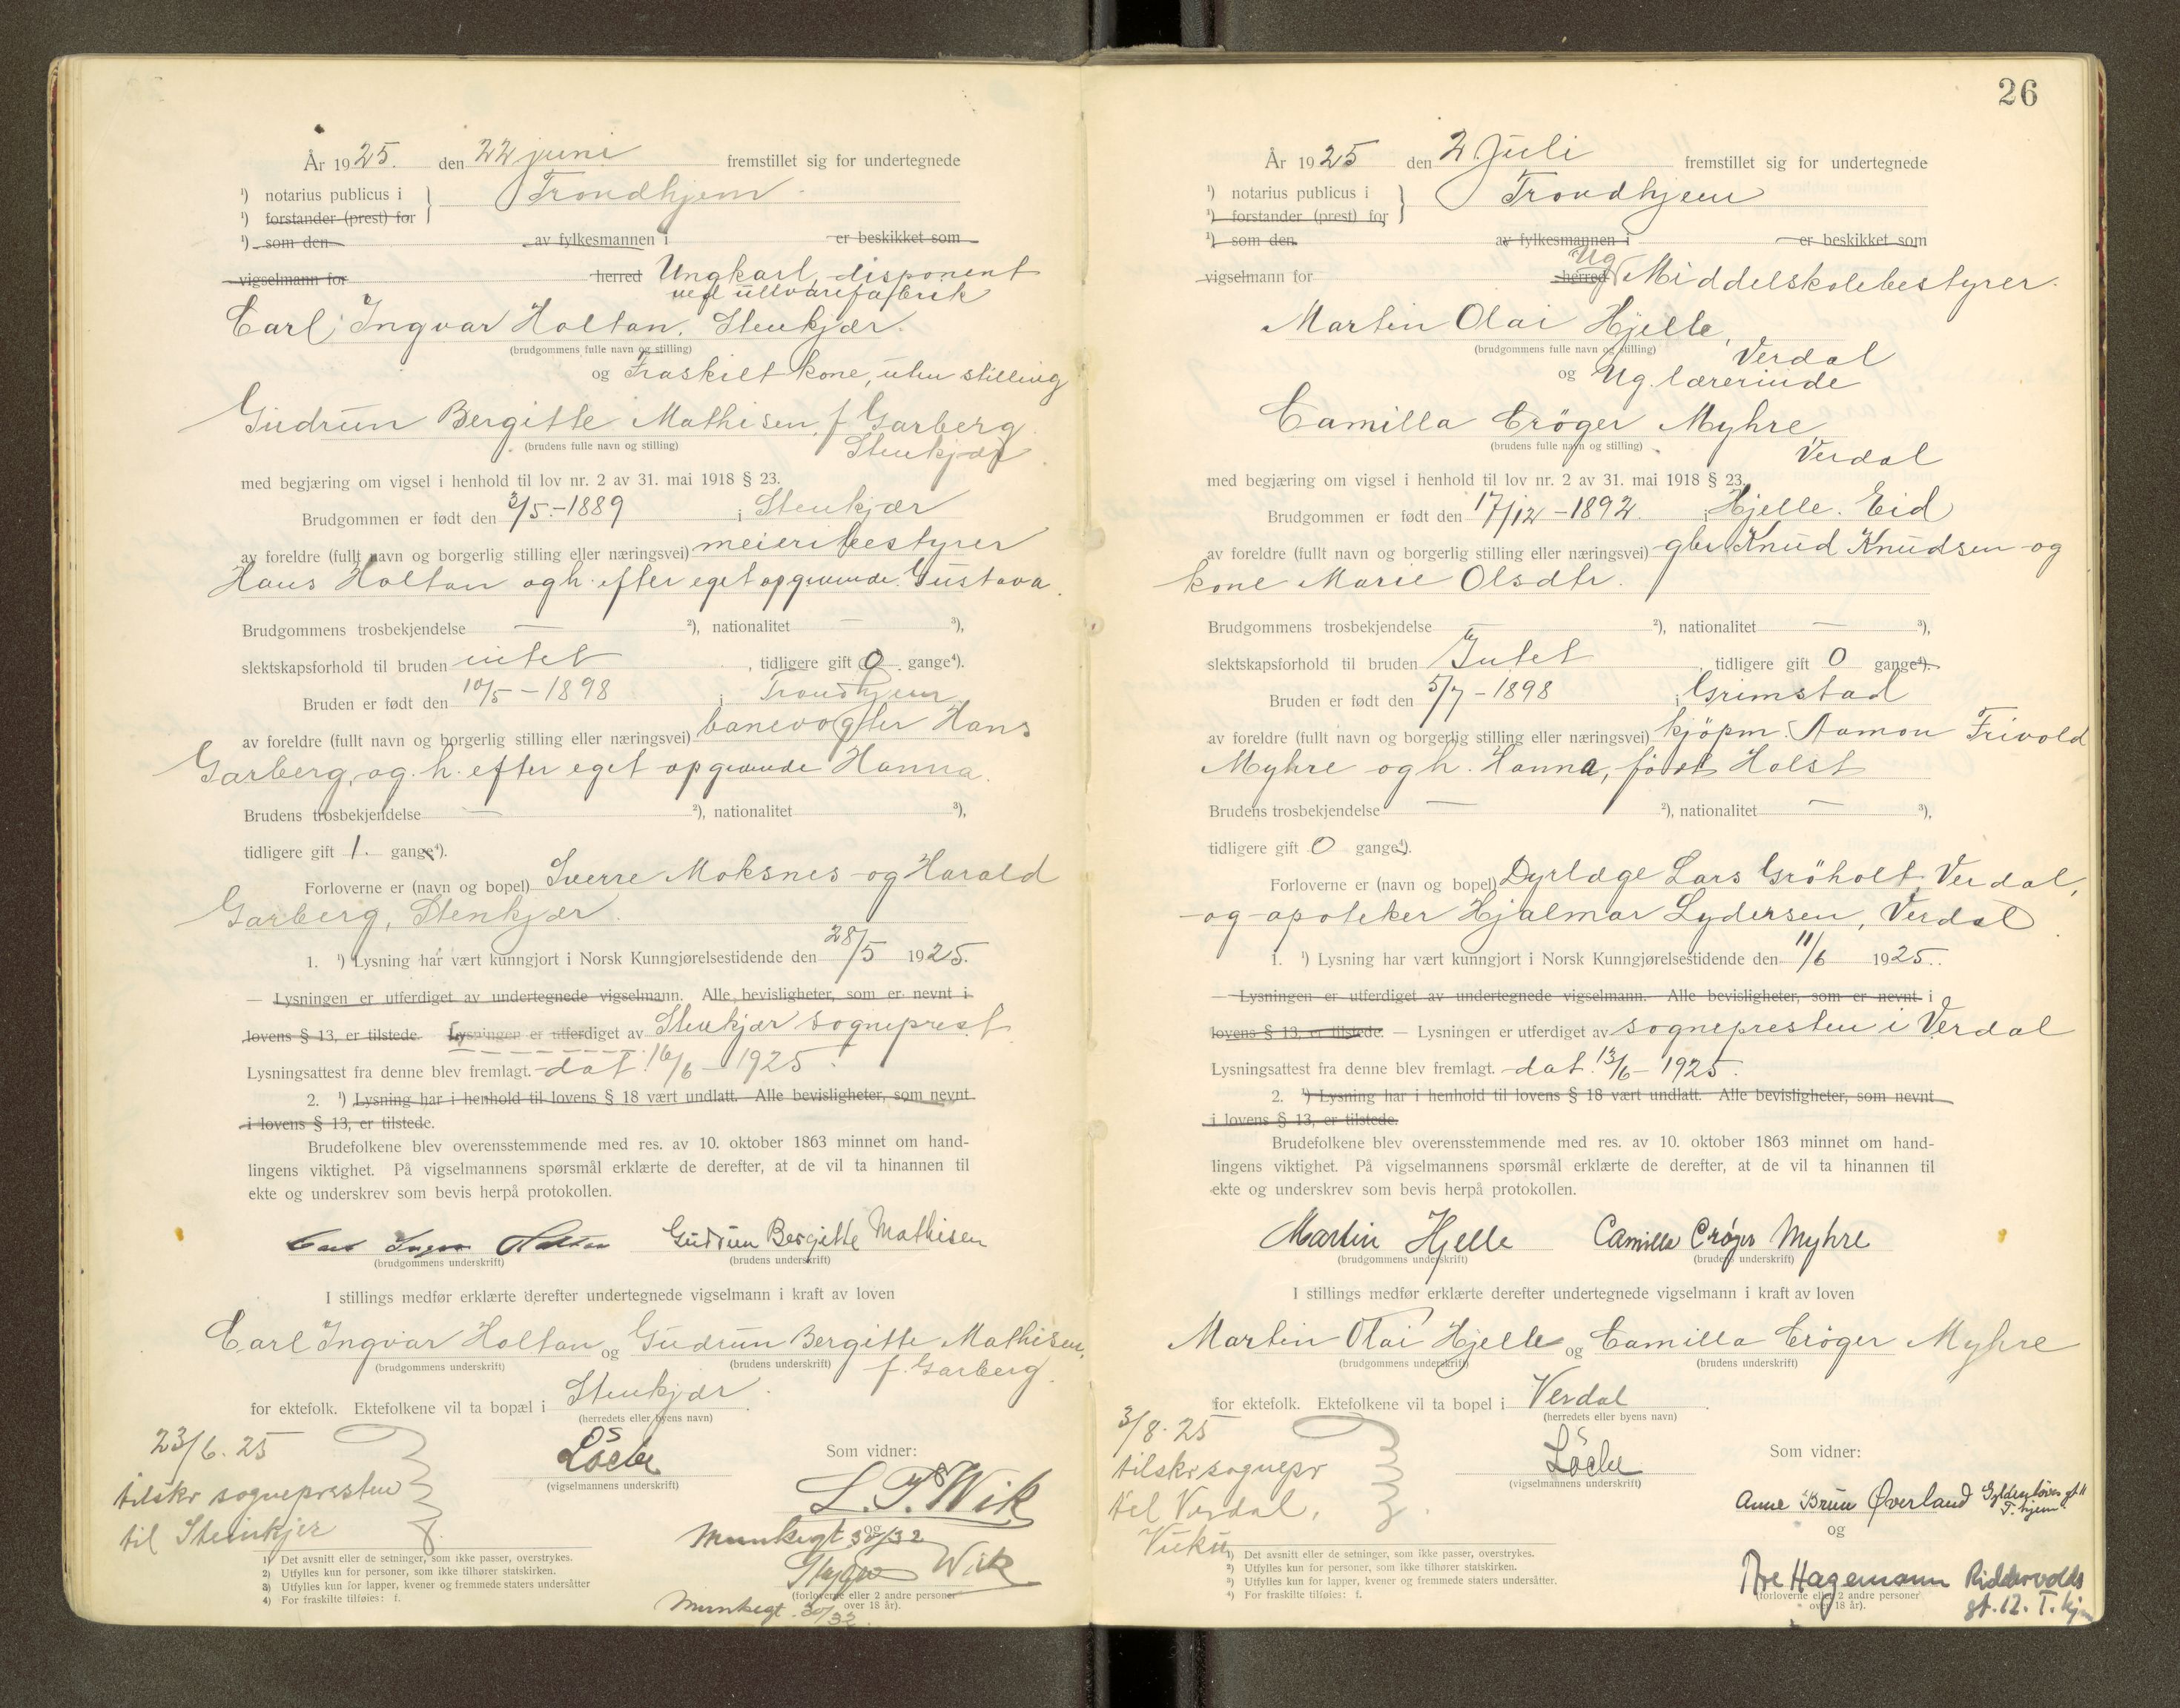 År 1925. den 22 juni fremstillet sig for undertegnede
¹) notarius publicus i } Trondhjem
¹) forstander (prest) for
¹) som den av fylkesmannen i er beskikket som
vigselmann for herred Ungkarl, disponent
ved uldvarefabrik
Carl Ingvar Holtan, Stenkjær.
(brudgommens fulle navn og stilling)
og Fraskilt kone, uten stilling
Gudrun Bergitte Mathisen, f Garberg
(brudens fulle navn og stilling)
Stenkjær
med begjæring om vigsel i henhold til lov nr. 2 av 31. mai 1918 § 23.
Brudgommen er født den 3/5.-1889 i Stenkjær
av foreldre (fullt navn og borgerlig stilling eller næringsvei) meieribestyrer
Hans Holtan og h. efter eget opgivende Gustava.
Brudgommens trosbekjendelse — ²), nationalitet — ³),
slektskapsforhold til bruden intet, tidligere gift 0 gange⁴).
Bruden er født den 10/5 - 1898 i Trondhjem
av foreldre (fullt navn og borgerlig stilling eller næringsvei) banevogter Hans
Garberg, og h. efter eget opgivende Hanna.
Brudens trosbekjendelse — ²), nationalitet ³),
tidligere gift 1. gange⁴).
Forloverne er (navn og bopel) Sverre Moksnes og Harald
Garberg, Stenkjær.
1. ¹) Lysning har vært kunngjort i Norsk Kunngjørelsestidende den 28/5 1925.
— Lysningen er utferdiget av undertegnede vigselmann. Alle bevisligheter, som er nevnt i
lovens § 13, er tilstede. Lysningen er utferdiget av Stenkjær sogneprest
Lysningsattest fra denne blev fremlagt. dat. 16/6 - 1925.
2. ¹) Lysning har i henhold til lovens § 18 vært undlatt. Alle bevisligheter, som nevnt
i lovens § 13, er tilstede.
Brudefolkene blev overensstemmende med res. av 10. oktober 1863 minnet om hand-
lingens viktighet. På vigselmannens spørsmål erklærte de derefter, at de vil ta hinannen til
ekte og underskrev som bevis herpå protokollen.
Carl Ingvar Holtan Gudrun Bergitte Mathisen
(brudgommens underskrift) (brudens underskrift)
I stillings medfør erklærte derefter undertegnede vigselmann i kraft av loven
Carl Ingvar Holtan og Gudrun Bergitte Mathisen,
(brudgommens underskrift) (brudens underskrift)
f. Garberg.
for ektefolk. Ektefolkene vil ta bopæl i Stenkjær.
(herredets eller byens navn)
23/6. 25
tilskr sognepresten
til Steinkjer
(vigselmannens underskrift)
Som vidner:
L. P. Wik
Munkegt 30/32
og
Wik
(forloverne eller 2 andre personer
over 18 år).
Munkegt. 30/32.
1) Det avsnitt eller de setninger, som ikke passer, overstrykes.
2) Utfylles kun for personer, som ikke tilhører statskirken.
3) Utfylles kun for lapper, kvener og fremmede staters undersåtter
4) For fraskilte tilføies: f.
26
År 1925 den 2 Juli fremstillet sig for undertegnede
¹) notarius publicus i } Trondhjem
¹) forstander (prest) for
¹) som den av fylkesmannen i er beskikket som
vigselmann for herred Ug Middelskolebestyrer
Martin Olai Hjelle,
(brudgommens fulle navn og stilling)
Verdal
og Ug. lærerinde
Camilla Cröger Myhre
(brudens fulle navn og stilling)
Verdal
med begjæring om vigsel i henhold til lov nr. 2 av 31. mai 1918 § 23.
Brudgommen er født den 17/12 - 1892 i Hjelle. Eid
av foreldre (fullt navn og borgerlig stilling eller næringsvei) gbr Knud Knudsen og
kone Marie Olsdtr.
Brudgommens trosbekjendelse — ²), nationalitet — ³),
slektskapsforhold til bruden Intet, tidligere gift 0 gange⁴).
Bruden er født den 5/7 - 1898 i Grimstad
av foreldre (fullt navn og borgerlig stilling eller næringsvei) kjöpm. Aamon Frivold
Myhre og h. Hanna, født Holst
Brudens trosbekjendelse — ²), nationalitet — ³),
tidligere gift 0 gange⁴).
Forloverne er (navn og bopel) Dyrlæge Lars Gröholt, Verdal,
og apoteker Hjalmar Lydersen, Verdal
1. ¹) Lysning har vært kunngjort i Norsk Kunngjørelsestidende den 11/6 1925.
— Lysningen er utferdiget av undertegnede vigselmann. Alle bevisligheter, som er nevnt i
lovens § 13, er tilstede. — Lysningen er utferdiget av sognepresten i Verdal
Lysningsattest fra denne blev fremlagt. dat. 13/6 - 1925.
2. ¹) Lysning har i henhold til lovens § 18 vært undlatt. Alle bevisligheter, som nevnt
i lovens § 13, er tilstede.
Brudefolkene blev overensstemmende med res. av 10. oktober 1863 minnet om hand-
lingens viktighet. På vigselmannens spørsmål erklærte de derefter, at de vil ta hinannen til
ekte og underskrev som bevis herpå protokollen.
Martin Hjelle Camilla Crøger Myhre
(brudgommens underskrift) (brudens underskrift)
I stillings medfør erklærte derefter undertegnede vigselmann i kraft av loven
Martin Olai Hjelle og Camilla Cröger Myhre
(brudgommens underskrift) (brudens underskrift)
for ektefolk. Ektefolkene vil ta bopel i Verdal.
(herredets eller byens navn)
3/8. 25
tilskr sognepr
til Verdal,
Vuku
(vigselmannens underskrift)
Som vidner:
Anne Brun Øverland Gyldenløves gt 11
T.hjem.
og
Hagemann Riddervolds
gt. 12. T. hjm
(forloverne eller 2 andre personer
over 18 år).
¹) Det avsnitt eller de setninger, som ikke passer, overstrykes.
²) Utfylles kun for personer, som ikke tilhører statskirken.
³) Utfylles kun for lapper, kvener og fremmede staters undersåtter.
⁴) For fraskilte tilføies: f.